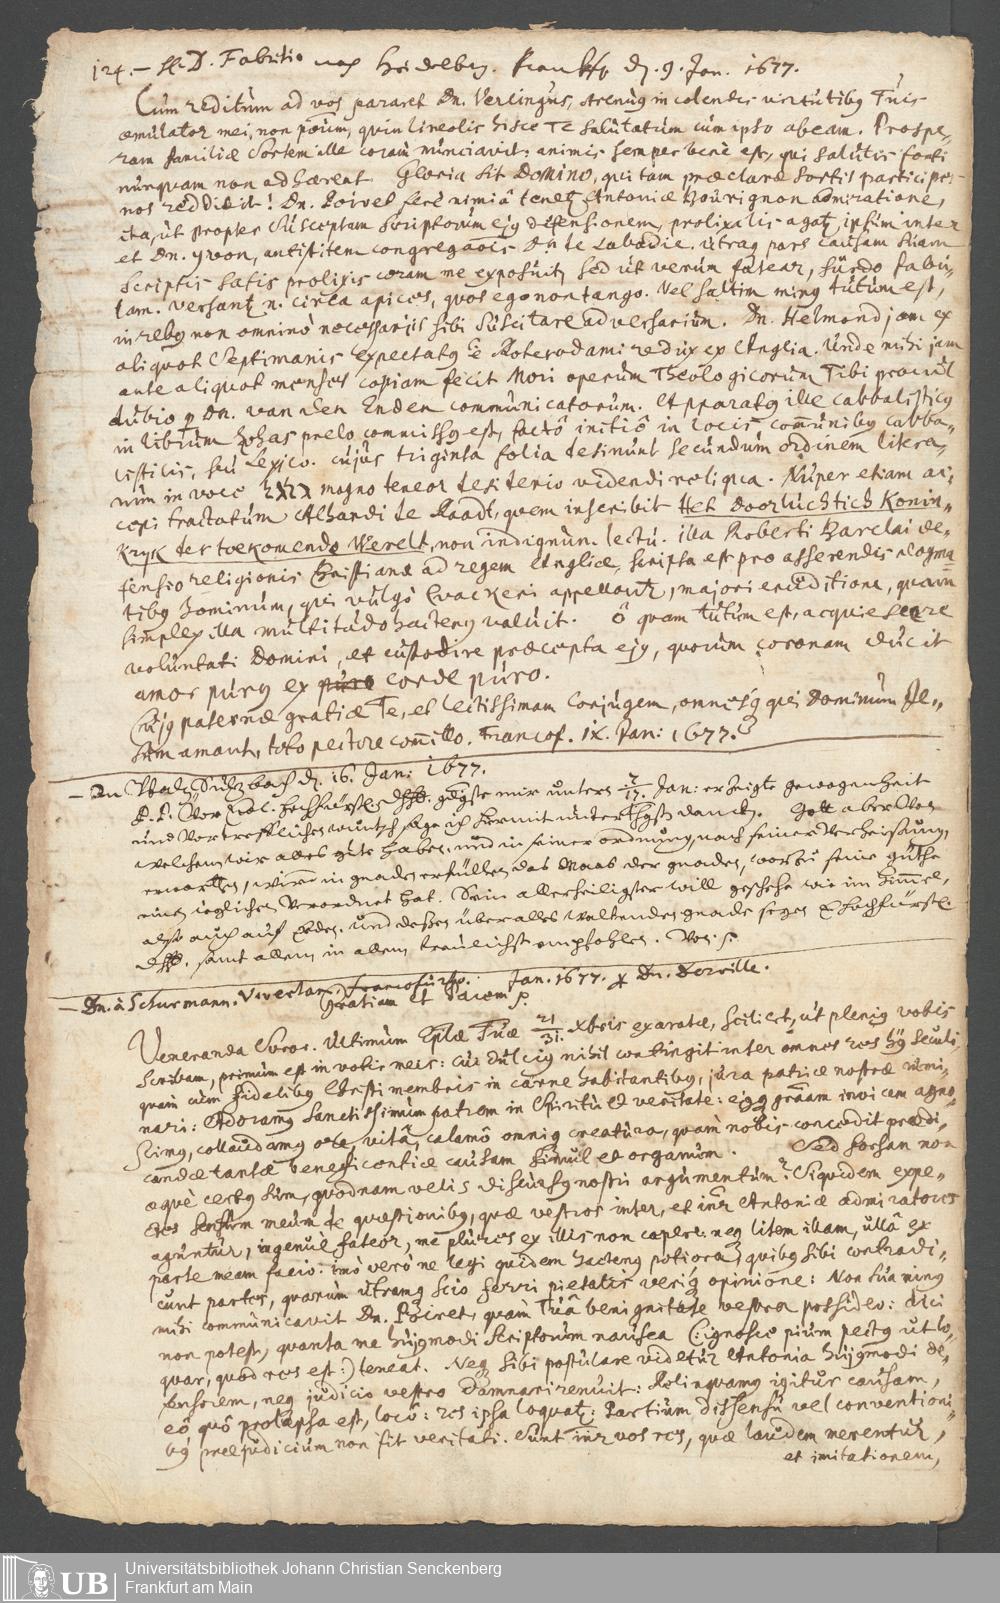 124. – H. D. Fabritio nach Heidelberg. Frankf. d. 9. Jan. 1677.
Cum reditum ad vos pararet Dn. Verlingus, strenuq in colendis virtutibq Tuis
æmulator mei, non potui, quin lineolis hisce Te salutatum cum ipso abeam. Prospe„
ram familiæ Sortem ille coram nunciavit: animis semper bene est, qui salutis fonti
nunquam non adhærent. Gloria sit Domino, qui tam præclaræ sortis participes
nos reddidit! Dn. Poiret fere nimiâ tenet Antoniæ Bourignon admiratione,
ita, ut propter susceptam scriptorum ejq defensionem, prolixa lis agat ipsum inter
et Dn. Yvon, antistitem congregaõis Dn de Labadie. utraq pars causam suam
scriptis satis prolixis coram me exposuit, sed ut verum fatear, surdo fabu„
lam. Versant n. circa apices, quos ego non tango. Vel saltim minq tutum est,
in rebq non omnino necessariis sibi suscitare adversarium. Dn. Helmond jam ex
aliquot Septimanis expectatq e Roterodami redux ex Anglia. Unde mihi jam
ante aliquot menses copiam fecit Mori operum Theologicorum Tibi procul
dubio p Dn. van den Enden communicatorum. Apparatq ille cabbalisticq
in librum Zohar prelo commissq est, factô initiô in locis com̃unibq cabba„
listicis, seu Lexico. cujus triginta folia desinunt secundum ordinem litera„
rum in voce magno teneor desiderio videndi reliqua. Nuper etiam ac„
cepi tractatum Alhardi de Raadt, quem inscribit Het doorluchtich Konin„
kryk der toekomende Werelt, non indignun. lectu. illa Roberti Barclai de„
fensio religionis Christianæ ad regem Angliæ, scripta est pro asserendis dogma
tibq hominum, qui vulgô Quackeri appellant, majori eruditione, quam
simplex illa multitudo hactenq valuit. ô quam tutum est, acquiescere
voluntati Domini, et custodire præcepta ejq, quorum coronam ducit
amor purq ex corde puro.
Cujq paternæ gratiæ Te, et lectissimam conjugem, omnesq qui Dominum Je„
sum amant, toto pectore com̃itto. Francof. IX. Jan: 1677.
– An Pfalz Sulzbach d. 16. Jan: 1677.
P.P. Vor Ew. hochfürstl. gdigste mir unterm 7/17. Jan: erzeigte gewogenheit
und vortrefflichen wunsch sage ich hiermit unterthgst danck. Gott aber von
welchem wir alles gute haben, und in seiner ordnung, nach seiner Verheißung,
erwarthen, wird in gnaden erfüllen das maas der gnaden, worzu seine güthe
einen ieglichen verordnet hat. Sein allerheiligster will geschehe wie im himmel,
also auch auf Erden. und deßen über alles waltender gnade seyen E hochfürstl.
samt allem in allem treulichst empfohlen. Von p.
– Dn. à Schurmann. Wiewerden, francofurto. Jan. 1677. p Dn. Dorville.
Gratiam et Pacem p.
Veneranda Soror. Ultimum Eplæ Tuæ 21/31. Xbris exaratæ, scilicet, ut plenq vobis
scribam, primum est in votis meis: cui dulciq nihil contingit inter omnes res hq seculi,
quàm cum fidelibq Christi membris in carne habitantibq, jura patriæ nostræ rimi„
nari: Adoramq Sanctissimum patrem in Spiritu et veritate: ejq gr̃am invicem agno„
scimq, collaudamq ore, vitâ, calamô omniq creatura, quam nobis concedit prædi„
candæ tantæ beneficentiæ causam simul et organum. Sed forsan non
æquè certq sum, quodnam velis discursq nostri argumentum? Siquidem expe„
tes sensum meum de quæstionibq, quæ vestros inter, et in̄r Antoniæ admiratores
aguntur, ingenuè fateor, me plures ex illis non capere. neq litem illam, ullâ ex
parte meam facio. imò verò ne legi quidem hactenq potiora, quibq sibi contradi„
cunt partes, quarum utramq scio ferri pietatis verisq opinione: Non sua minq
mihi communicavit Dn. Poiret, quam Tuâ benignitate vestra possideo: dici
non potest, quanta me hujqmodi scriptorum nausea (: ignosce pium pectq ut lo„
quar, quod res est:) teneat. Neq sibi postulare videtur Antonia hujqmodi de„
fensorem, neq judicio vestro damnari renuit: Relinquamq igitur causam,
eô quô prolapsa est, locô: res ipsa loquat: Partium dissensu vel conventioni„
bq præjudicium non fit veritati. Sunt in̄r vos res, quæ laudem merentur,
et imitationem,
Universitätsbibliothek Johann Christian Senckenberg
Frankfurt am Main
UB